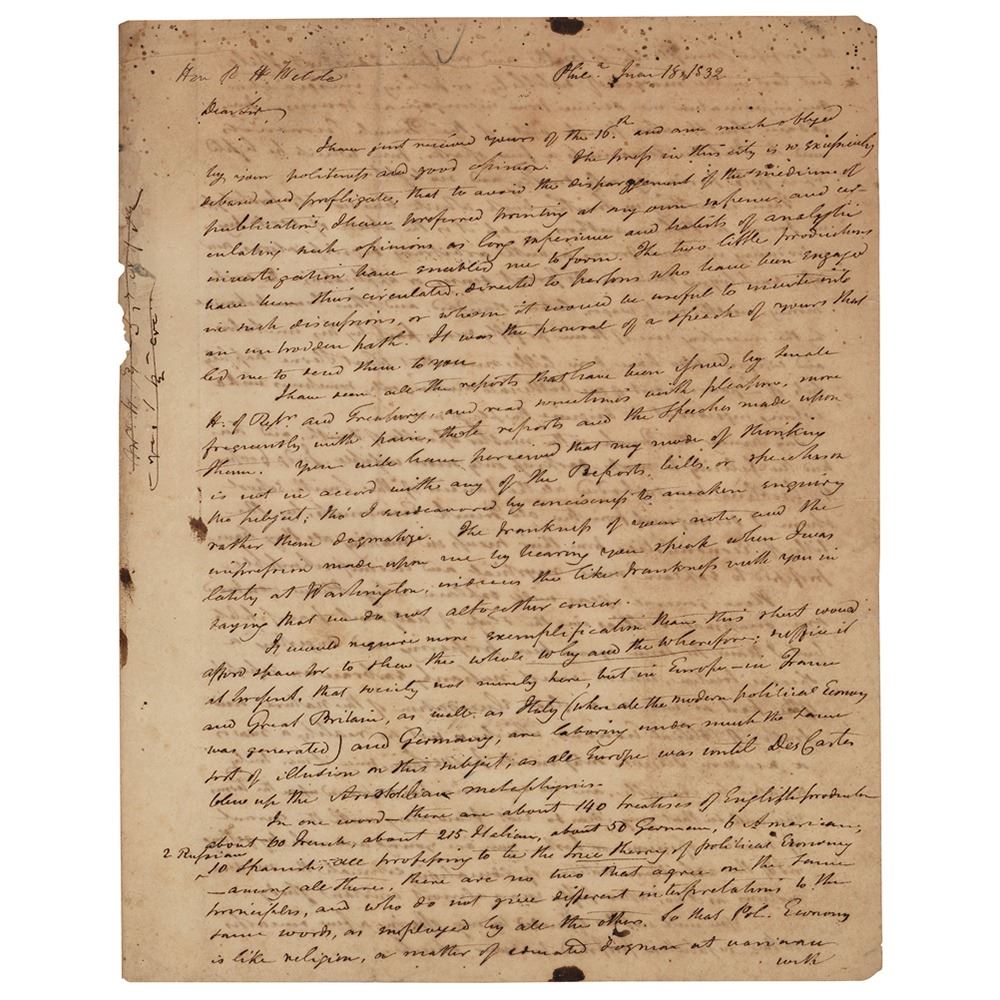 Hon R H Wilde
Phila. June 18, 1832
Dear Sir,
I have just received yours of the 16th and am much obliged
by your politeness and good opinion. The press in this city is so excessively
debased and profligate, that to avoid the disparagement of the medium of
publication, I have preferred printing at my own expense, and cir-
culating such opinions as long experience and habits of analytic
investigation have enabled me to form. The two little productions
have been thus circulated, directed to persons who have been engaged
in such discussions, or whom it would be useful to invite into
an untrodden path. It was the perusal of a speech of yours that
led me to send them to you
I have seen all the reports that have been issued, by Senate
H. of Repr. and Treasury, and read sometimes with pleasure, more
frequently with pain, those reports and the speeches made upon
them. You will have perceived that my mode of thinking
is not in accord with any of the Reports, bills, or speeches on
the subject; tho' I endeavoured by conciseness to awaken enquiry
rather than dogmatize. The frankness of your note, and the
impression made upon me by hearing you speak when I was
lately at Washington, induces the like frankness with you in
saying that we do not altogether concur.
It would require more exemplification than this sheet would
afford space for to shew the whole why and the wherefore; suffice it
at present, that society not merely here, but in Europe—in France
and Great Britain, as well as Italy (where all the modern political Economy
was generated) and Germany, are laboring under much the same
sort of illusion on this subject, as all Europe was until Des Cartes
blew up the Aristotelian metaphysics.
In one word—there are about 140 treatises of English production
about 60 French, about 215 Italian, about 50 German, 6 American,
2 Russian
10 Spanish, all professing to be the true theory of political Economy
—among all these, there are no two that agree on the same
principles, and who do not give different interpretations to the
same words, as employed by all the others. So that Pol. Economy
is like religion, a matter of dogmas at variance
with